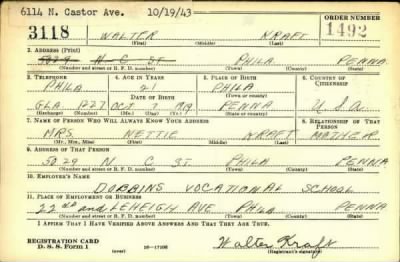 6114 N. Castor Ave. 10/19/43
SERIAL NUMBER 1. NAME (Print) ORDER NUMBER
3118 WALTER KRAFT 1492
(First) (Middle) (Last)
2. ADDRESS (Print)
5029 N C ST PHILA PENNA
(Number and street or R. F. D. number) (Town) (County) (State)
3. TELEPHONE 4. AGE IN YEARS 5. PLACE OF BIRTH 6. COUNTRY OF CITIZENSHIP
PHILA 21 PHILA
DATE OF BIRTH (Town or county)
GLA 1227 OCT 1919 PENNA U.S.A.
(Exchange) (Number) (Mo.) (Day) (Yr.) (State or country)
7. NAME OF PERSON WHO WILL ALWAYS KNOW YOUR ADDRESS 8. RELATIONSHIP OF THAT PERSON
MRS. NETTIE KRAFT MOTHER
(Mr., Mrs., Miss) (First) (Middle) (Last)
9. ADDRESS OF THAT PERSON
5029 N C ST PHILA PENNA
(Number and street or R. F. D. number) (Town) (County) (State)
10. EMPLOYER'S NAME
DOBBINS VOCATIONAL SCHOOL
11. PLACE OF EMPLOYMENT OR BUSINESS
22nd and LEHEIGH AVE PHILA PENNA
(Number and street or R. F. D. number) (Town) (County) (State)
I AFFIRM THAT I HAVE VERIFIED ABOVE ANSWERS AND THAT THEY ARE TRUE.
REGISTRATION CARD
D. S. S. Form 1 (over) 16-17105 Walter Kraft